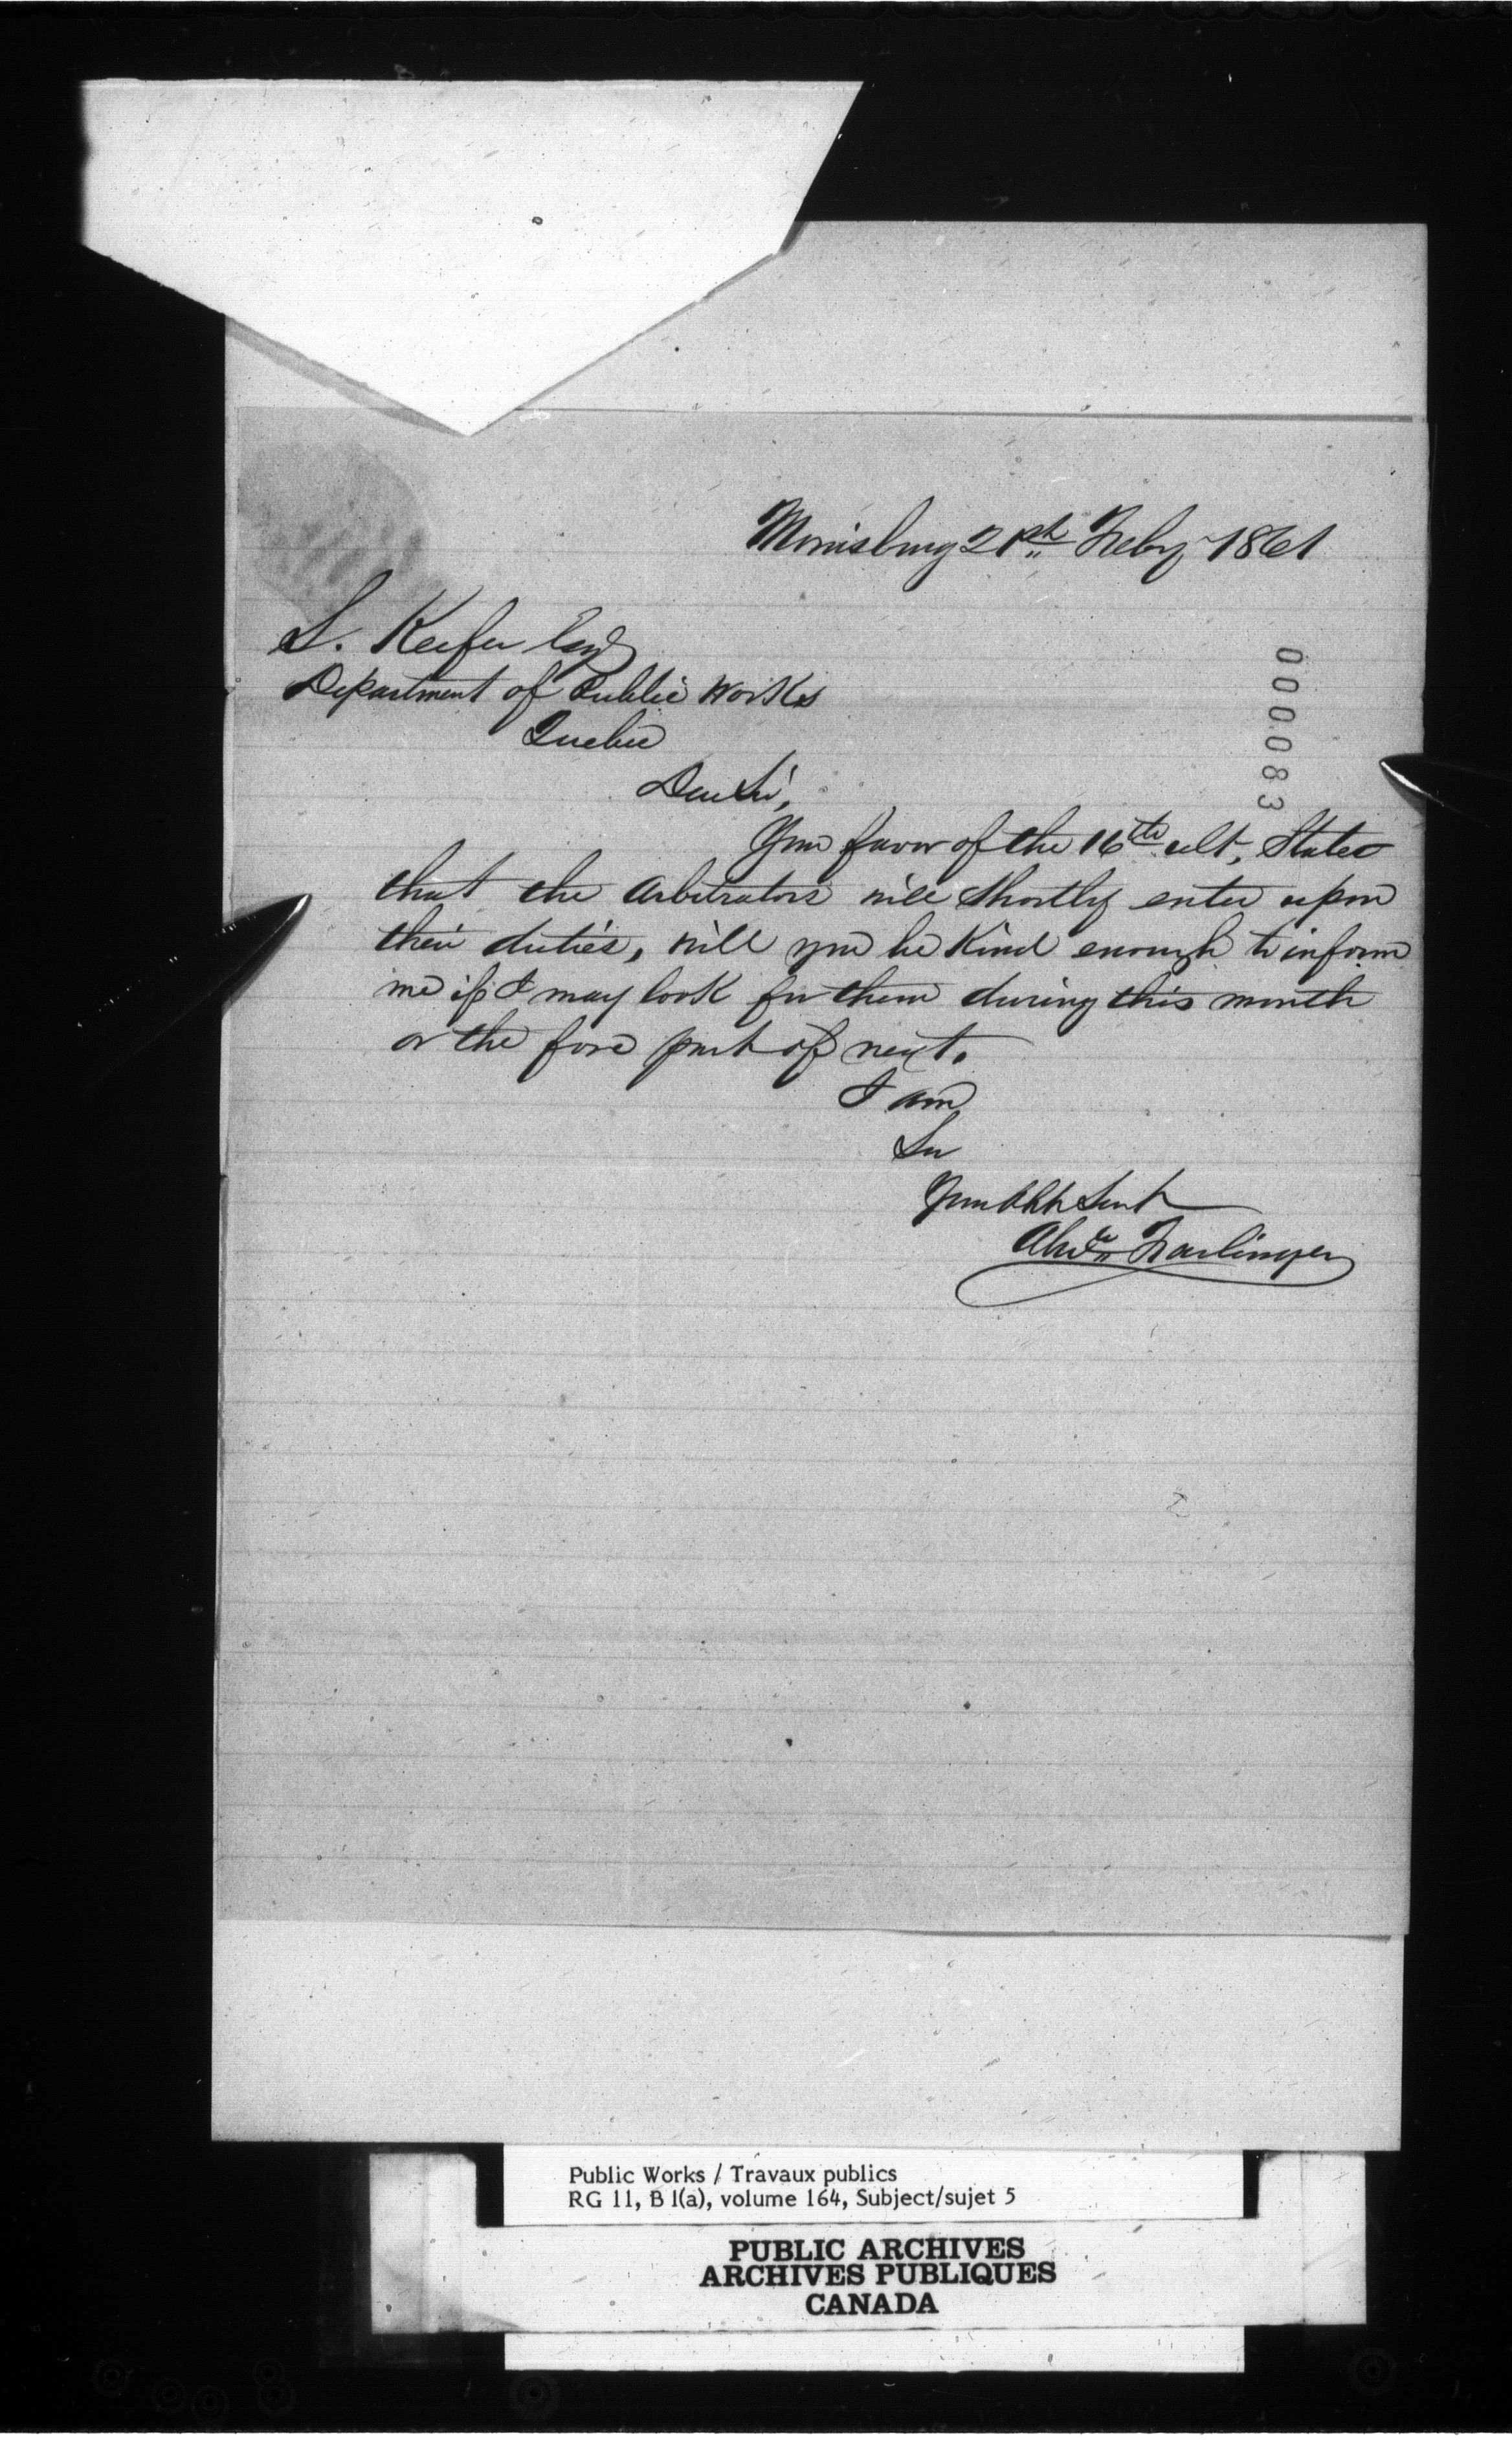 Morrisburg 21st Feby 1861
S. Keefer Esqr
Department of Public Works
Quebec
Dear Sir,
000083
Your favor of the 16th ult, States
that the Arbitrators will Shortly enter upon
their duties, will you be Kind enough to inform
me if I may look for them during this month
or the fore part of next.
I am
Sir
Your Obt Servt
Alexr Farlinger
Public Works / Travaux publics
RG 11, B 1(a), volume 164, Subject/sujet 5
PUBLIC ARCHIVES
ARCHIVES PUBLIQUES
CANADA